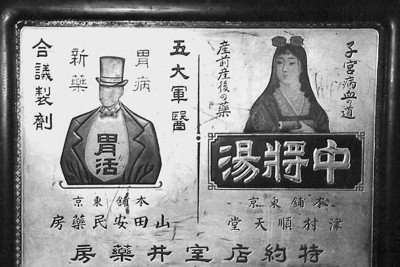 子宮病血の道
産前産後の藥
中將湯
本舖東京
津村順天堂
五大軍醫
胃病
新藥
合議製劑
胃活
本舖東京
山田安民藥房
特約店室井藥房